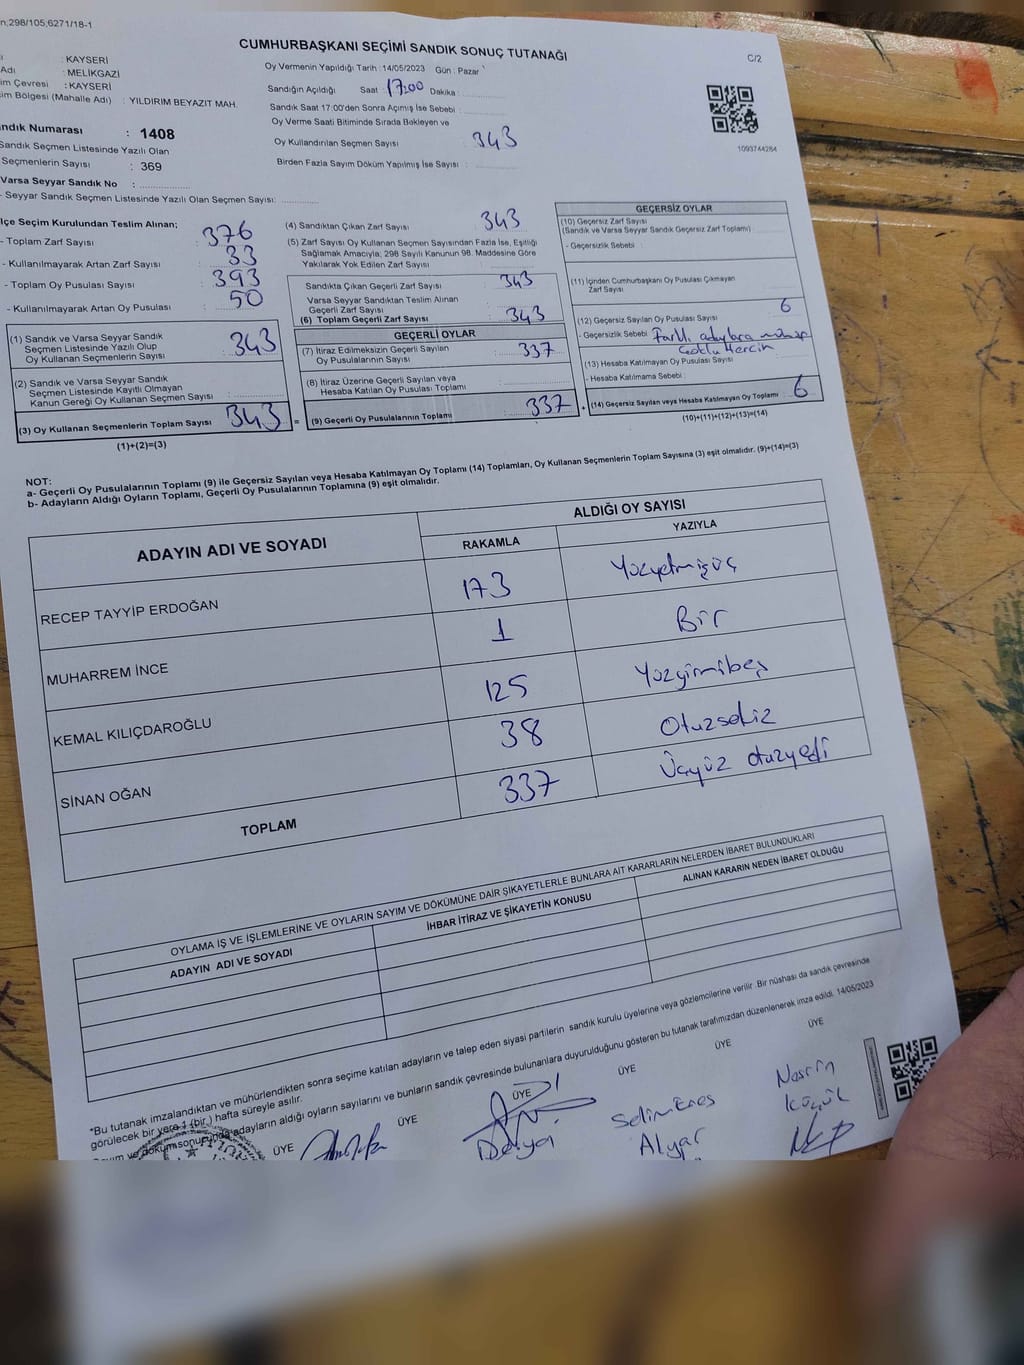 n;298/105;6271/18-1
CUMHURBAŞKANI SEÇİMİ SANDIK SONUÇ TUTANAĞI
C/2
: KAYSERİ
Adı : MELİKGAZİ
im Çevresi : KAYSERİ
im Bölgesi (Mahalle Adı) : YILDIRIM BEYAZIT MAH.
Oy Vermenin Yapıldığı Tarih :14/05/2023 Gün : Pazar
Sandığın Açıldığı Saat : 17:00 Dakika :
Sandık Saat 17:00'den Sonra Açımış İse Sebebi :
Oy Verme Saati Bitiminde Sırada Bekleyen ve
Oy Kullandırılan Seçmen Sayısı : 343
Birden Fazla Sayım Döküm Yapılmış İse Sayısı :
1093744284
ndık Numarası : 1408
Sandık Seçmen Listesinde Yazılı Olan
Seçmenlerin Sayısı : 369
Varsa Seyyar Sandık No :
- Seyyar Sandık Seçmen Listesinde Yazılı Olan Seçmen Sayısı:
lçe Seçim Kurulundan Teslim Alınan;
- Toplam Zarf Sayısı : 376
- Kullanılmayarak Artan Zarf Sayısı : 33
- Toplam Oy Pusulası Sayısı : 393
- Kullanılmayarak Artan Oy Pusulası : 50
(1) Sandık ve Varsa Seyyar Sandık
Seçmen Listesinde Yazılı Olup
Oy Kullanan Seçmenlerin Sayısı : 343
(2) Sandık ve Varsa Seyyar Sandık
Seçmen Listesinde Kayıtlı Olmayan
Kanun Gereği Oy Kullanan Seçmen Sayısı :
(3) Oy Kullanan Seçmenlerin Toplam Sayısı : 343
(1)+(2)=(3)
(4) Sandıktan Çıkan Zarf Sayısı : 343
(5) Zarf Sayısı Oy Kullanan Seçmen Sayısından Fazla İse, Eşitliği
Sağlamak Amacıyla; 298 Sayılı Kanunun 98. Maddesine Göre
Yakılarak Yok Edilen Zarf Sayısı :
Sandıkta Çıkan Geçerli Zarf Sayısı : 343
Varsa Seyyar Sandıktan Teslim Alınan
Geçerli Zarf Sayısı :
(6) Toplam Geçerli Zarf Sayısı : 343
GEÇERLİ OYLAR
(7) İtiraz Edilmeksizin Geçerli Sayılan
Oy Pusulalarının Sayısı : 337
(8) İtiraz Üzerine Geçerli Sayılan veya
Hesaba Katılan Oy Pusulası Toplamı :
= (9) Geçerli Oy Pusulalarının Toplamı : 337
GEÇERSİZ OYLAR
(10) Geçersiz Zarf Sayısı
(Sandık ve Varsa Seyyar Sandık Geçersiz Zarf Toplamı)
- Geçersizlik Sebebi :
(11) İçinden Cumhurbaşkanı Oy Pusulası Çıkmayan
Zarf Sayısı :
(12) Geçersiz Sayılan Oy Pusulası Sayısı : 6
- Geçersizlik Sebebi : Farklı adaylara
(13) Hesaba Katılmayan Oy Pusulası Sayısı :
- Hesaba Katılmama Sebebi :
+ (14) Geçersiz Sayılan veya Hesaba Katılmayan Oy Toplamı : 6
(10)+(11)+(12)+(13)=(14)
NOT:
a- Geçerli Oy Pusulalarının Toplamı (9) ile Geçersiz Sayılan veya Hesaba Katılmayan Oy Toplamı (14) Toplamları, Oy Kullanan Seçmenlerin Toplam Sayısına (3) eşit olmalıdır. (9)+(14)=(3)
b- Adayların Aldığı Oyların Toplamı, Geçerli Oy Pusulalarının Toplamına (9) eşit olmalıdır.
ADAYIN ADI VE SOYADI
ALDIĞI OY SAYISI
RAKAMLA
YAZIYLA
RECEP TAYYİP ERDOĞAN 173 Yüzyetmişüç
MUHARREM İNCE 1 Bir
KEMAL KILIÇDAROĞLU 125 Yüzyirmibeş
SİNAN OĞAN 38 Otuzsekiz
TOPLAM 337 Üçyüz otuzyedi
OYLAMA İŞ VE İŞLEMLERİNE VE OYLARIN SAYIM VE DÖKÜMÜNE DAİR ŞİKAYETLERLE BUNLARA AİT KARARLARIN NELERDEN İBARET BULUNDUKLARI
ADAYIN ADI VE SOYADI
İHBAR İTİRAZ VE ŞİKAYETİN KONUSU
ALINAN KARARIN NEDEN İBARET OLDUĞU
*Bu tutanak imzalandıktan ve mühürlendikten sonra seçime katılan adayların ve talep eden siyasi partilerin sandık kurulu üyelerine veya gözlemcilerine verilir. Bir nüshası da sandık çevresinde
görülecek bir yere 1 (bir) hafta süreyle asılır.
ve döküm sonucunda adayların aldığı oyların sayılarını ve bunların sandık çevresinde bulunanlara duyurulduğunu gösteren bu tutanak tarafımızdan düzenlenerek imza edildi. 14/05/2023
ÜYE ÜYE ÜYE ÜYE ÜYE ÜYE
Derya
Selim Enes
Alyar
Nesrin
Küçük